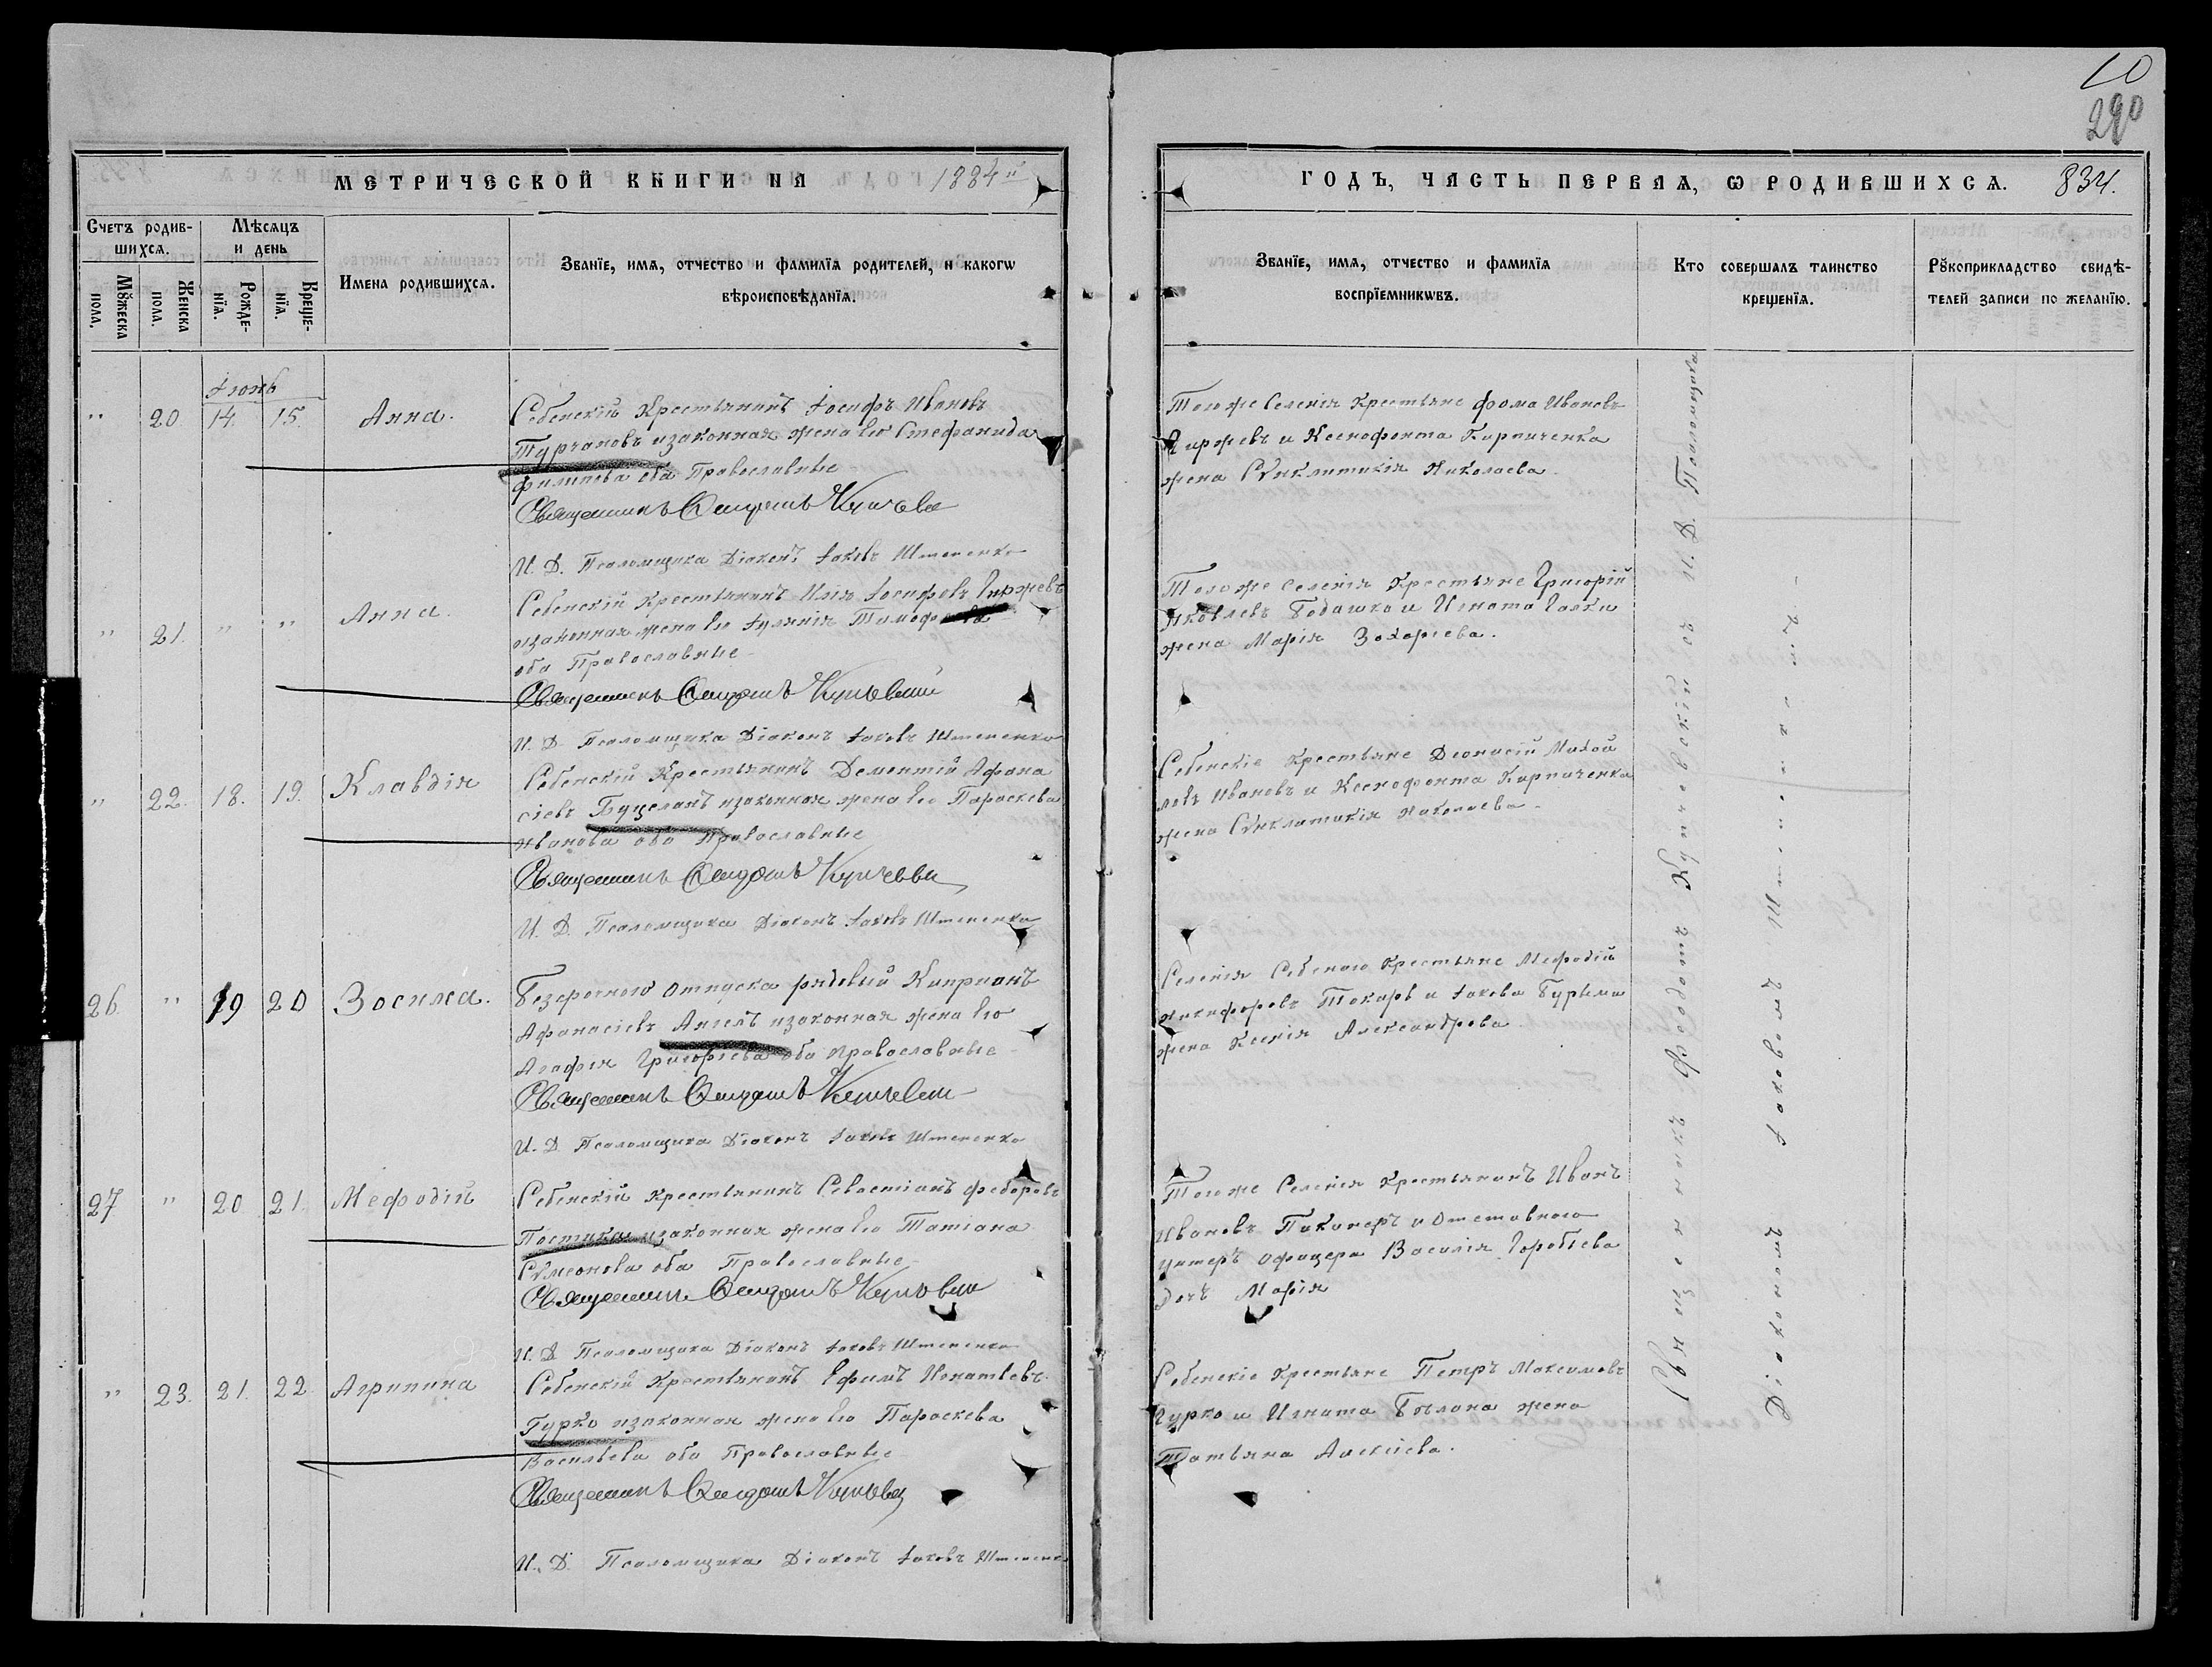 10
290
МЕТРИЧЕСКОЙ КНИГИ НА 1884й
ГОДЪ, ЧАСТЬ ПЕРВАЯ, Ѡ РОДИВШИХСѦ. 834.
Счетъ родив-
шихсѧ.
Мꙋжеска пола.
Женска пола.
Мѣсѧцъ
и день
Рожде-
нїѧ.
Креще-
нїѧ.
Имена родившихсѧ.
Званїе, имѧ, отчество и фамилїѧ родителей, и какогѡ
вѣроисповѣданїѧ.
Званїе, имѧ, отчество и фамилїѧ
воспрїемникѡвъ.
Кто совершалъ таинство
крещенїѧ.
Рꙋкоприкладство свидѣ-
телей записи по желанїю.
Іюнь
" 20 14. 15. Анна.
Себенскій Крестьянинъ Іосифъ Ивановъ
Турчановъ изаконная жена Его Стефанида
Филипова оба Православные
Священникъ Ѳеодотъ
И. Д. Псаломщика Діаконъ Іаковъ
Тогоже Селенія Крестьяне Фома Ивановъ
Гиржевъ и Ксенофонта Кирпиченка
жена Сѵнклитикія Николаева
" 21. " " Анна.
Себенскій Крестьянинъ Илія Іосифовъ Гиржевъ
изаконная жена Его Іуліанія Тимофеева
оба Православные
Священникъ Ѳеодотъ
И. Д. Псаломщика Діаконъ Іаковъ
Тогоже селенія Крестьяне Григорій
Яковлевъ Бодашко и Игната Галки
жена Марія Захарьева.
" 22. 18. 19. Клавдія
Себенскій Крестьянинъ Дементій Афана
сіевъ Буцеланъ изаконная жена Его Параскева
Иванова оба Православные
Священникъ Ѳеодотъ
И. Д. Псаломщика Діаконъ Іаковъ
Себенскіе Крестьяне Діонисій Михай
ловъ Ивановъ и Ксенофонта Кирпиченка
жена Сѵнклитикія Николаева
26. " 19 20 Зосима.
Безсрочного отпуска рядовый Кипріанъ
Афанасіевъ Ангелъ изаконная жена Его
Агафія Григорьева оба Православные
Священникъ Ѳеодотъ
И. Д. Псаломщика Діаконъ Іаковъ
Селенія Себеного Крестьяне Мефодій
Никифоровъ Токарь и Іакова Бурыма
жена Ксенія Александрова
27 " 20 21. Мефодій
Себенскій Крестьянинъ Севастіанъ Федоровъ
Постика изаконная жена Его Татіана
Сѵмеонова оба Православные
Священникъ Ѳеодотъ
И. Д. Псаломщика Діаконъ Іаковъ
Тогоже Селенія Крестьянинъ Иванъ
Ивановъ Пиканеръ и отставного
унтеръ офицера Василія Горобьева
дочь Марія
" 23. 21. 22. Агрипина
Себенскій Крестьянинъ Ефимъ Игнатьевъ
Гурко изаконная жена Его Параскева
Васильева оба Православные
Священникъ Ѳеодотъ
И. Д. Псаломщика Діаконъ Іаковъ
Себенскіе Крестьяне Петръ Максимовъ
Гурко и Игната Бѣлана жена
Татьяна Алексіева.
Священникъ Ѳеодотъ Кульчевскій съ И. Д. Псаломщика
Діакономъ Іаковомъ